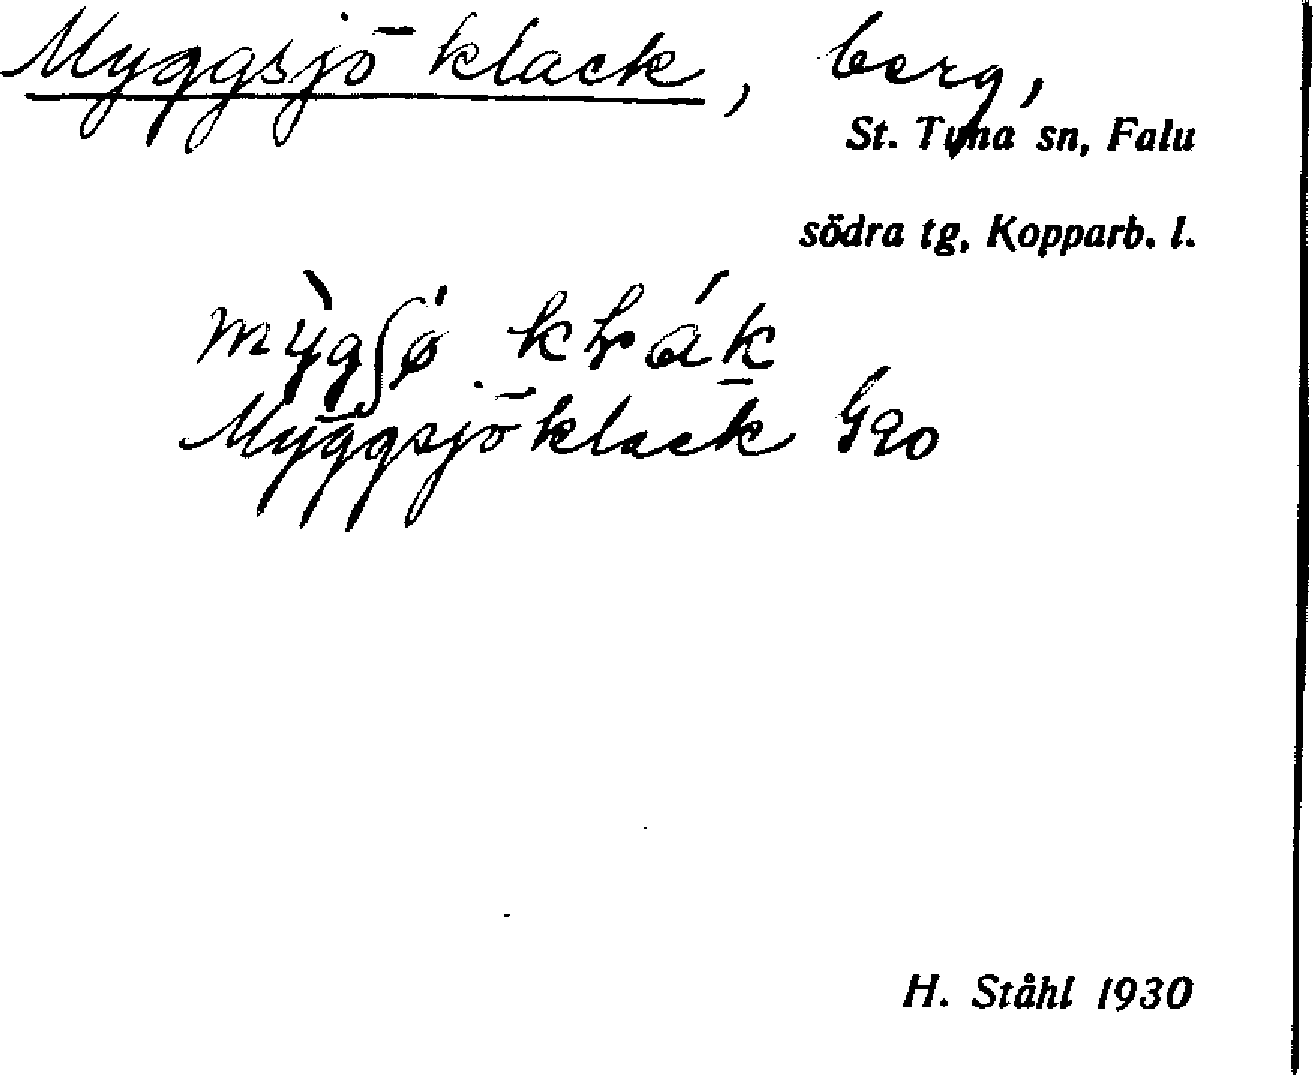 Myggsjöklack, berg,
St. Tuna sn, Falu
södra tg, Kopparb. l.
Myggsjöklack
H. Ståhl 1930